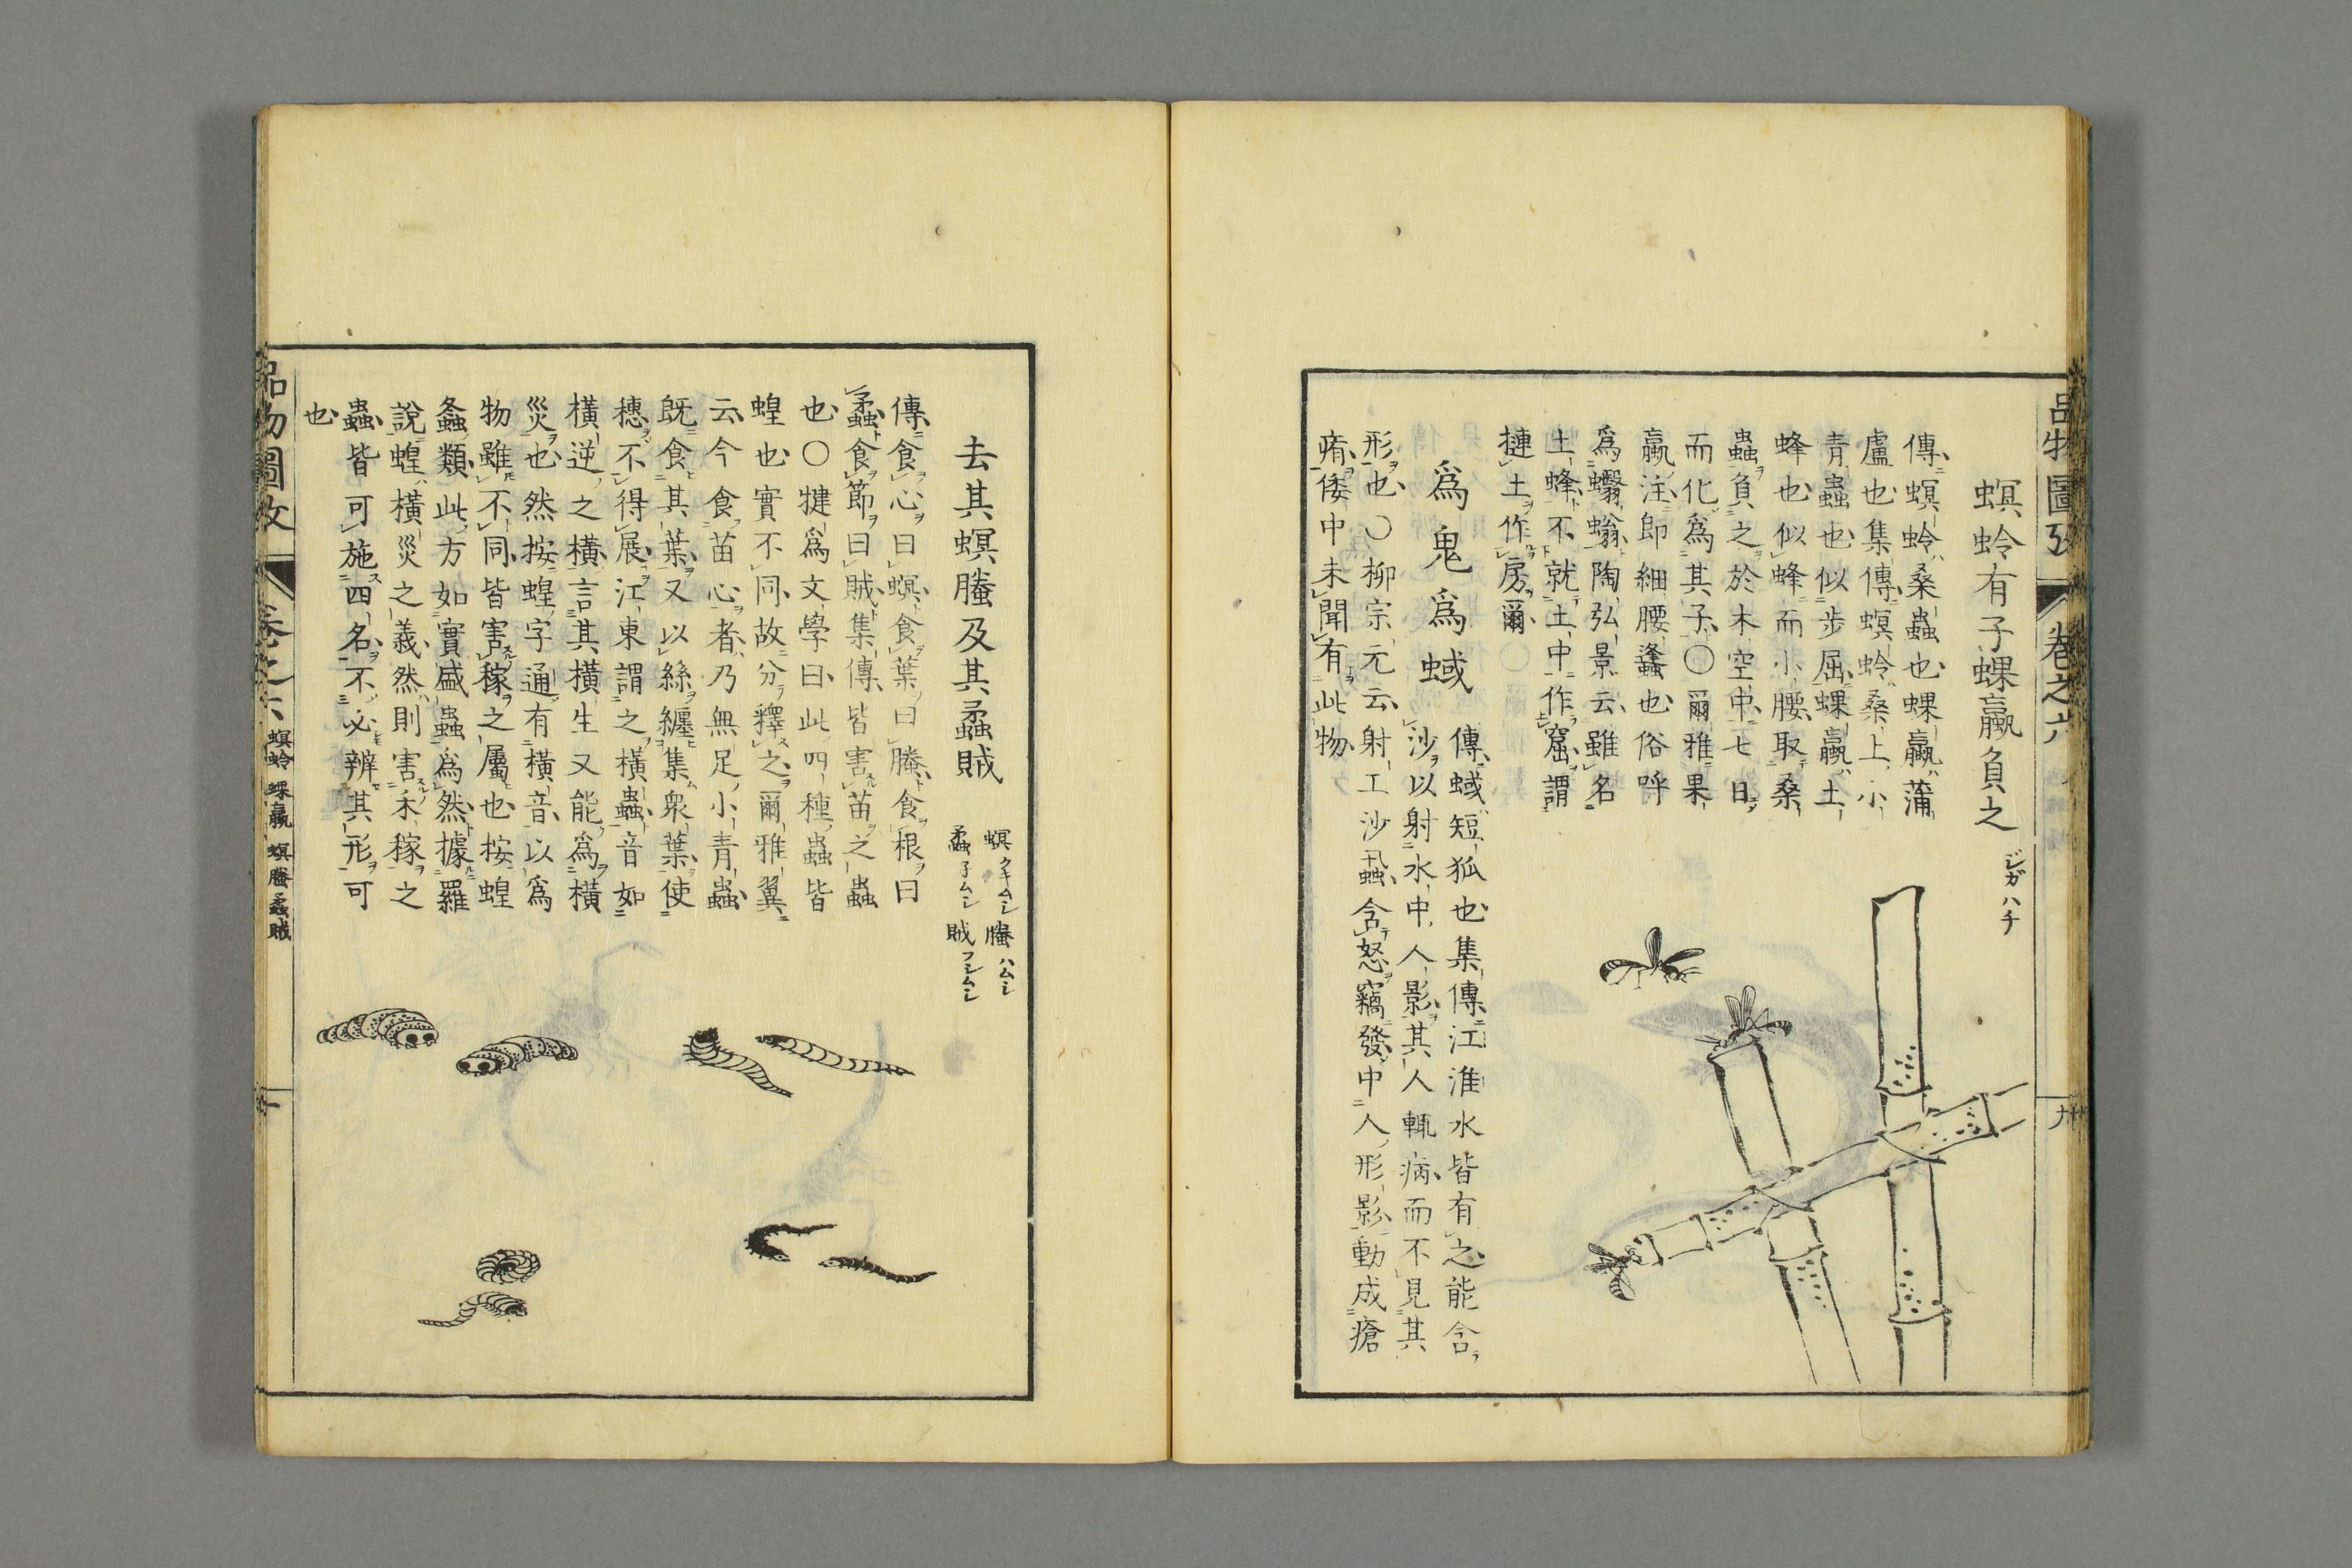 品物圖攷 卷之六 九
螟蛉有子蜾蠃負之 ジガハチ
傳螟蛉桑蟲也蜾蠃蒲
盧也集傳螟蛉桑上小
青蟲也似步屈蜾蠃土
蜂也似蜂而小腰取桑
蟲負之於木空中七日
而化爲其子○爾雅果
蠃注卽細腰蠭也俗呼
爲蠮螉陶弘景云雖名
土蜂不就土中作窟謂
摙土作房爾○
爲鬼爲蜮
傳蜮短狐也集傳江淮水皆有之能含
沙以射水中人影其人輒病而不見其
形也○柳宗元云射工沙虱蟲含怒竊發中人形影動成瘡
痏倭中未聞有此物
去其螟螣及其蟊賊
螟 クキムシ 螣 ハムシ
蟊 子ムシ 賊 フシムシ
傳食心曰螟食葉曰螣食根曰
蟊食節曰賊集傳皆害苗之蟲
也○犍爲文學曰此四種蟲皆
蝗也實不同故分釋之爾雅翼
云今食苗心者乃無足小青蟲
旣食其葉又以絲纏集衆葉使
穗不得展江東謂之橫蟲音如
橫逆之橫言其橫生又能爲橫
災也然按蝗字通有橫音以爲
物雖不同皆害稼之屬也按蝗
螽類此方如實盛蟲爲然據羅
說蝗橫災之義然則害禾稼之
蟲皆可施四名不必辨其形可
也
品物圖攷 卷之六 螟蛉 蜾蠃 螟螣蟊賊 十